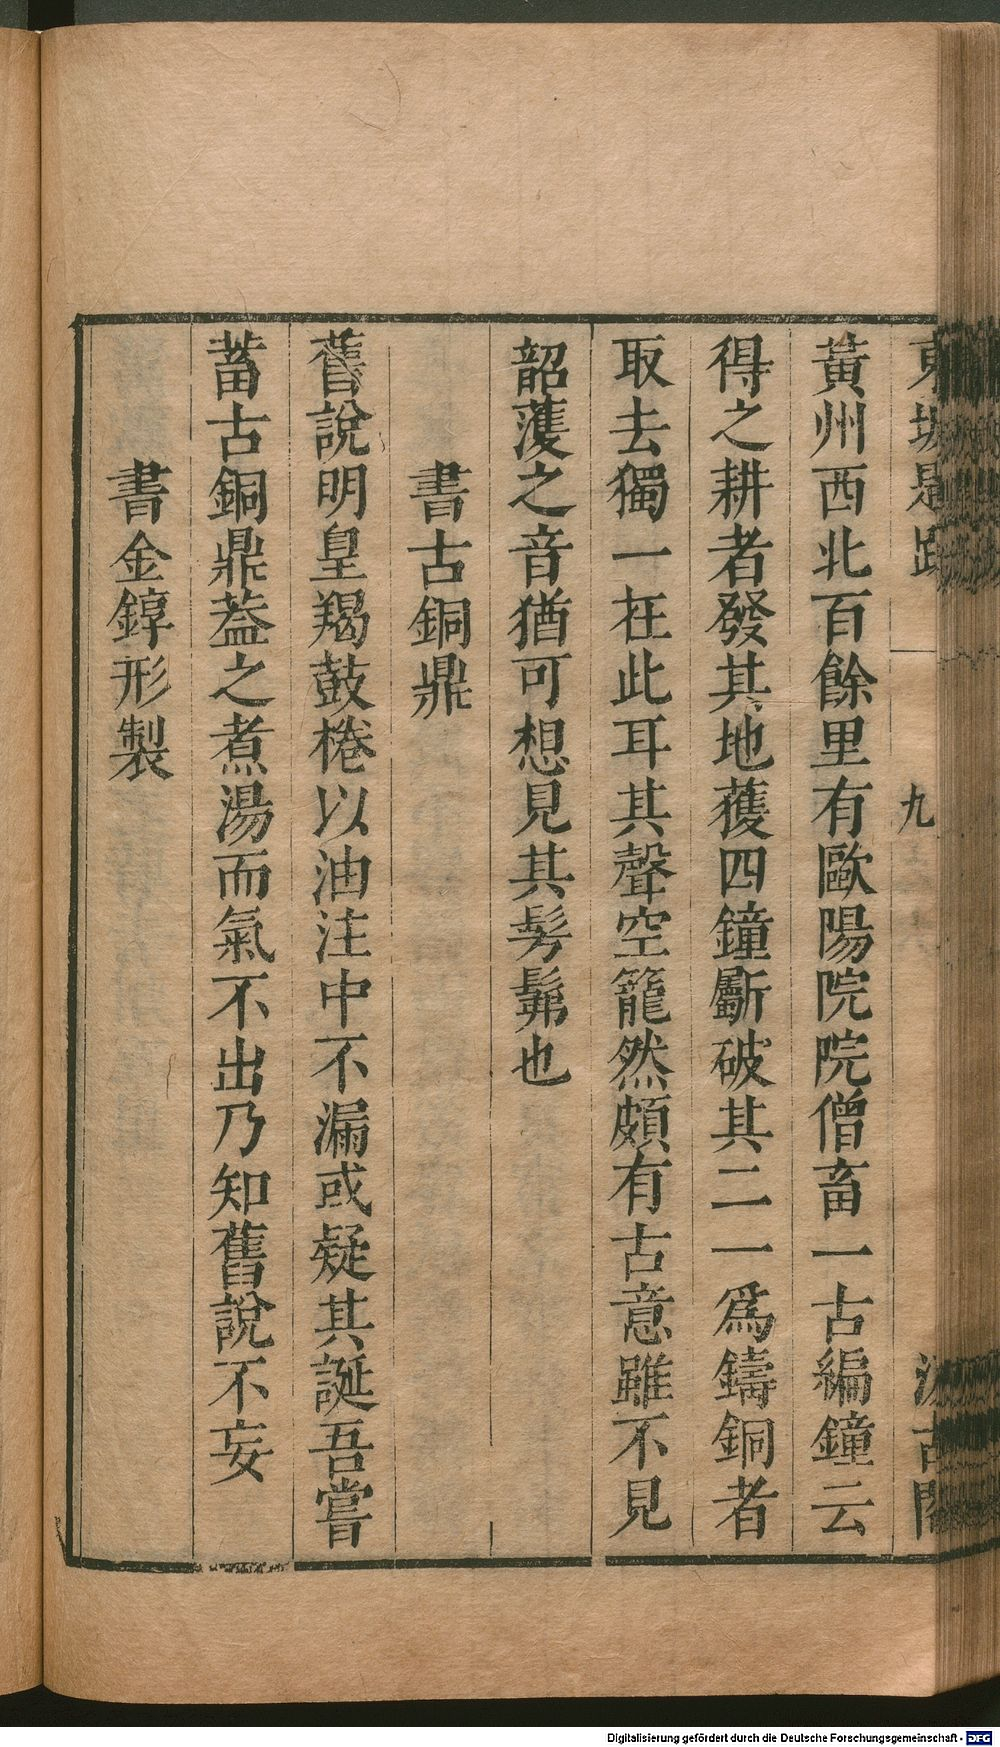 東坡題跋
九
汲古閣
黃州西北百餘里有歐陽院院僧畜一古編鐘云
得之耕者發其地獲四鐘斸破其二一爲鑄銅者
取去獨一在此耳其聲空籠然頗有古意雖不見
韶濩之音猶可想見其髣髴也
書古銅鼎
舊說明皇羯鼓棬以油注中不漏或疑其誕吾嘗
蓄古銅鼎葢之煮湯而氣不出乃知舊說不妄
書金錞形製
Digitalisierung gefördert durch die Deutsche Forschungsgemeinschaft - DFG